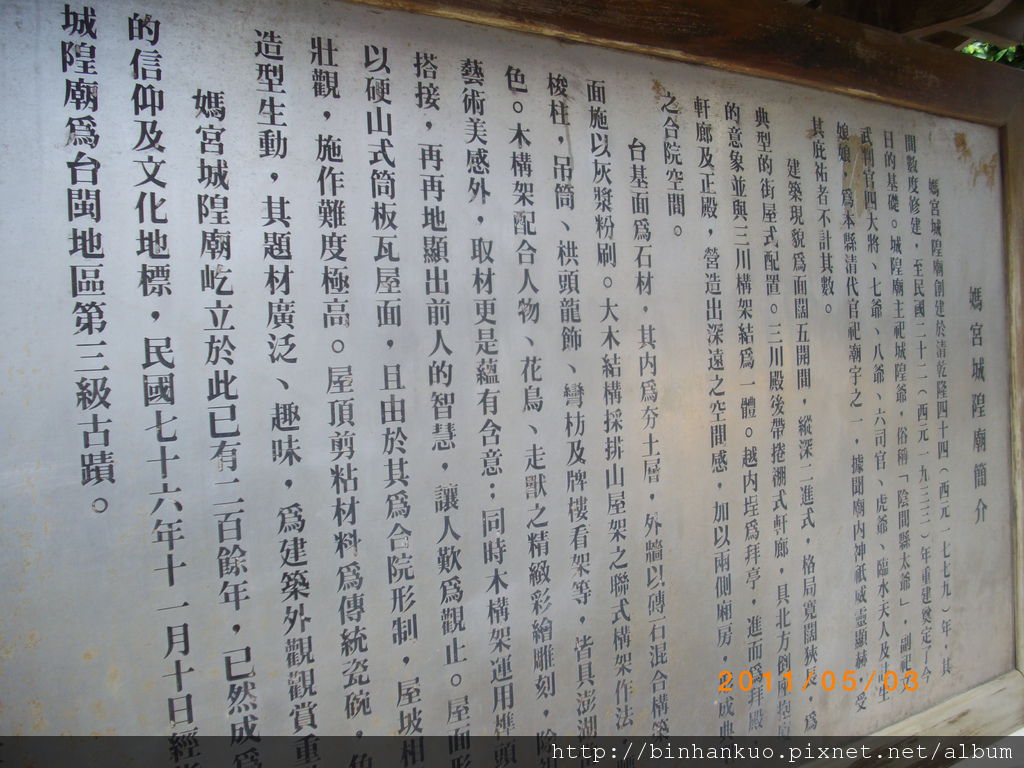 媽宮城隍廟簡介
媽宮城隍廟創建於清乾隆四十四(西元一七七九)年,其
間數度修建,至民國二十二(西元一九三三)年重建奠定了今
日的基礎。城隍廟主祀城隍爺,俗稱「陰間縣太爺」,副祀
武判官四大將、七爺、八爺、六司官、虎爺、臨水夫人及註生
娘娘,為本縣清代官祀廟宇之一,據聞廟內神祇威靈顯赫,受
其庇祐者不計其數。
建築現貌為面闊五開間,縱深二進式,格局寬闊狹長,為
典型的街屋式配置。三川殿後帶捲棚式軒廊,具北方倒座抱廈
的意象並與三川構架結為一體。越內埕為拜亭,進而為拜殿
軒廊及正殿,營造出深遠之空間感,加以兩側廂房,形成典
之合院空間。
台基面為石材,其內為夯土層,外牆以磚石混合構築
面施以灰漿粉刷。大木結構採排山屋架之聯式構架作法
梭柱,吊筒、栱頭龍飾、彎枋及牌樓看架等,皆具澎湖
色。木構架配合人物、花鳥、走獸之精緻彩繪雕刻,除
藝術美感外,取材更是蘊有含意;同時木構架運用榫頭
搭接,再再地顯出前人的智慧,讓人歎為觀止。屋面形
以硬山式筒板瓦屋面,且由於其為合院形制,屋坡相
壯觀,施作難度極高。屋頂剪粘材料為傳統瓷碗,角
造型生動,其題材廣泛、趣味,為建築外觀觀賞重
媽宮城隍廟屹立於此已有二百餘年,已然成為
的信仰及文化地標,民國七十六年十一月十日經
城隍廟為台閩地區第三級古蹟。
2011/05/03
http://binhankuo.pixnet.net/album